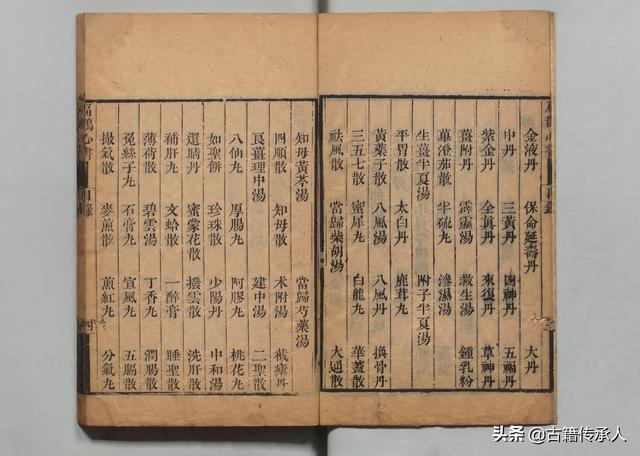 金液丹 保命延壽丹 大丹
中丹 三黃丹 四神丹 五福丹
紫金丹 全真丹 來復丹 草神丹
薑附丹 霹靂湯 救生湯 鍾乳粉
蓽澄茄散 半硫丸 滲濕湯
生薑半夏湯 附子半夏湯
平胃散 太白丹 鹿茸丸
黃藥子散 八風湯 八風丹 換骨丹
三五七散 蜜犀丸 白龍丸 華蓋散
祛風散 當歸柴胡湯 大通散
知母黃芩湯 當歸芍藥湯
四順散 知母散 朮附湯 截瘧丹
良薑理中湯 建中湯 二聖散
八仙丸 厚腸丸 阿膠丸 桃花丸
如聖餅 珍珠散 少陽丹 中和湯
還睛丹 蜜蒙花散 撥雲散 洗肝散
補肝丸 文蛤散 一醉膏 睡聖散
薄荷散 碧雲湯 丁香丸 潤腸散
菟絲子丸 石膏丸 宣風丸 五膈散
撮氣散 麥煎散 煎紅丸 分氣丸
扁鵲心書 目錄 四
头条 @古籍传承人